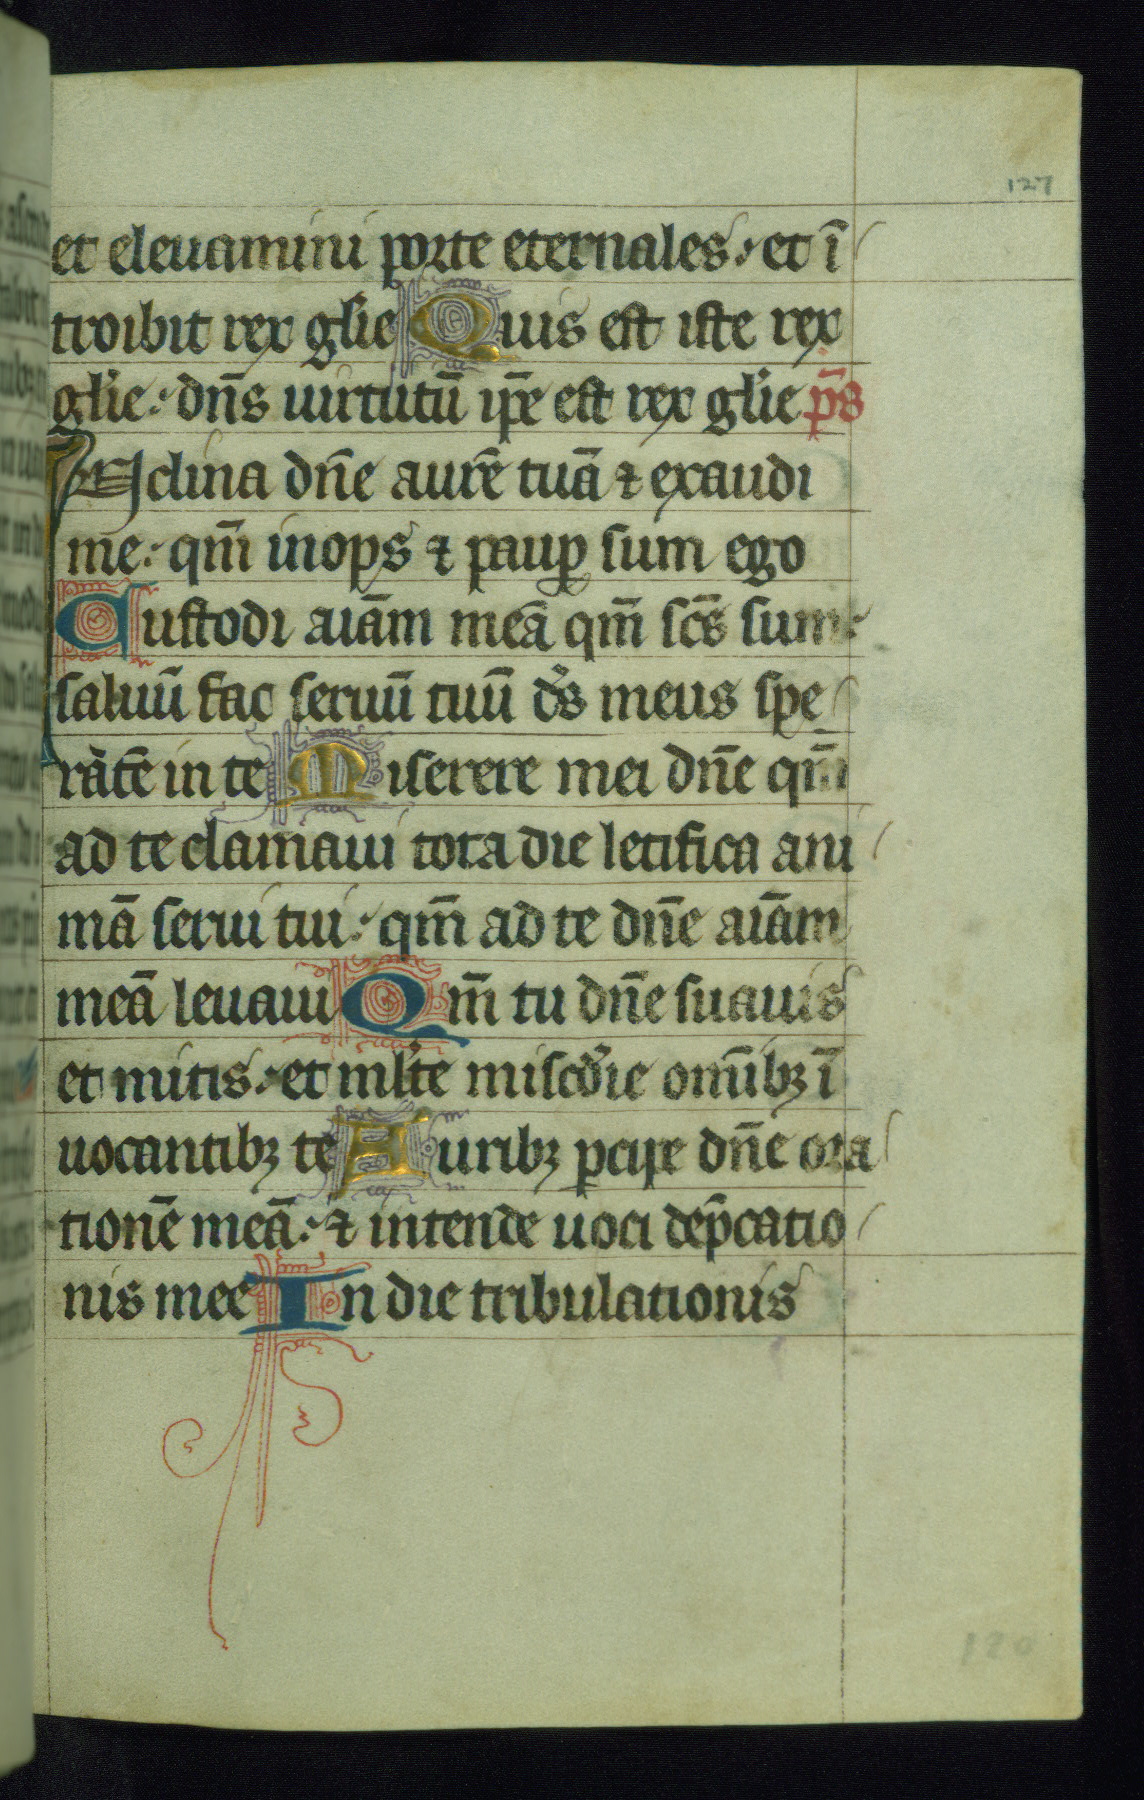 127
et eleuamini porte eternales : et ī
troibit rex glĩe Quis est iste rex
glĩe : dñs uirtutũ ip̃e est rex glĩe p̃s
INclina dñe aurẽ tuã ⁊ exaudi
me : qm̃ inops ⁊ paup̱ sum ego
Custodi aiãm meã qm̃ sc̃s sum :
saluũ fac seruũ tuũ ds̃ meus spe
rãtẽ in te Miserere mei dñe qm̃
ad te clamaui tota die letifica ani
mã serui tui : qm̃ ad te dñe aiãm
meã leuaui Qm̃ tu dñe suauis
et mitis : et ml̃te misc̃die om̃ibꝫ ĩ
uocantibꝫ te Auribꝫ ꝑcipe dñe ora
tionẽ meã : ⁊ intende uoci dep̃catio
nis mee In die tribulationis
120